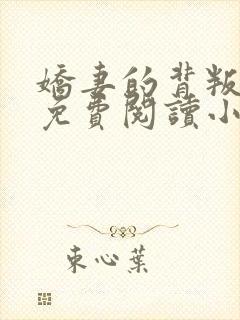 嬌妻的背叛
免費閱讀小
束心葉